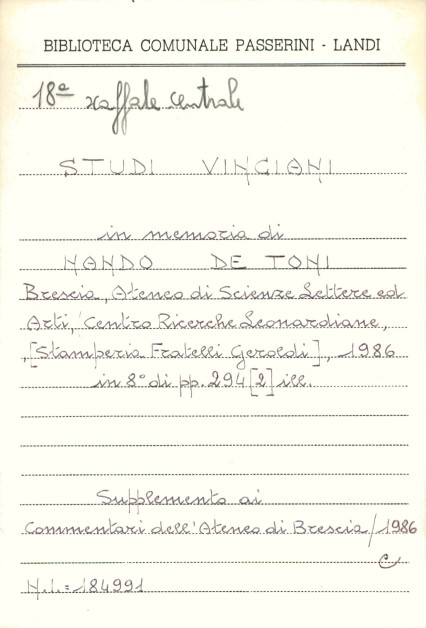 BIBLIOTECA COMUNALE PASSERINI - LANDI
18ª scaffale centrale
STUDI VINCIANI
in memoria di
NANDO DE TONI
Brescia, Ateneo di Scienze Lettere ed
Arti, Centro Ricerche Leonardiane,
,[Stamperia Fratelli Geroldi], 1986
in 8° di pp. 294[2] ill.
Supplemento ai
Commentari dell'Ateneo di Brescia/1986
C
N.i.=184991